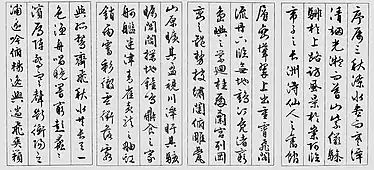 序屬三秋潦水盡而寒潭
清煙光凝而暮山紫儼驂
騑於上路訪風景於崇阿臨
帝子之長洲得仙人之舊館
層巒聳翠上出重霄飛閣
流丹下臨無地鶴汀鳧渚窮
島嶼之縈迴桂殿蘭宮列岡
巒之體勢披繡闥俯雕甍
山原曠其盈視川澤紆其駭
矚閭閻撲地鐘鳴鼎食之家
舸艦迷津青雀黃龍之舳虹
銷雨霽彩徹雲衢落霞
與孤鶩齊飛秋水共長天一
色漁舟唱晚響窮彭蠡之
濱雁陣驚寒聲斷衡陽之
浦遙吟俯暢逸興遄飛爽籟